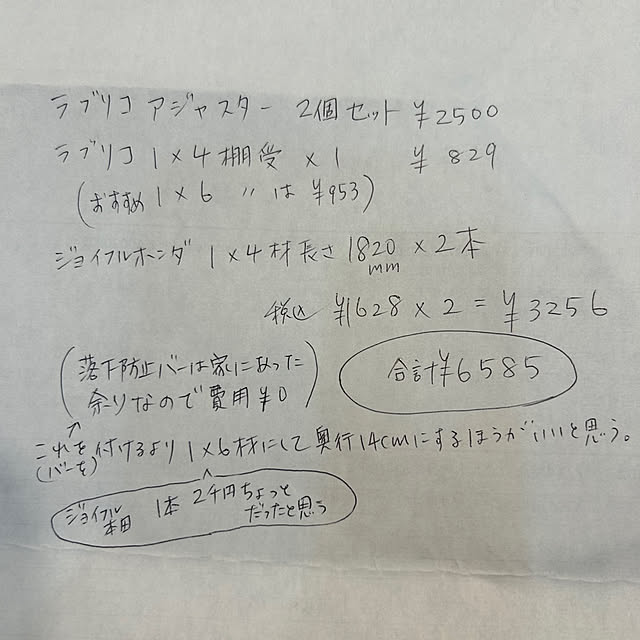 ラブリコ アジャスター 2個セット ¥2500
ラブリコ 1×4棚受 ×1 ¥829
(おすすめ 1×6 〃 は ¥953)
ジョイフルホンダ 1×4材長さ1820mm×2本
税込 ¥1628×2=¥3256
(落下防止バーは家にあった
余りなので費用¥0)
合計¥6585
これを(バーを)付けるより1×6材にして奥行14cmにするほうがいいと思う。
ジョイフル本田 1本 2千円ちょっと
だったと思う